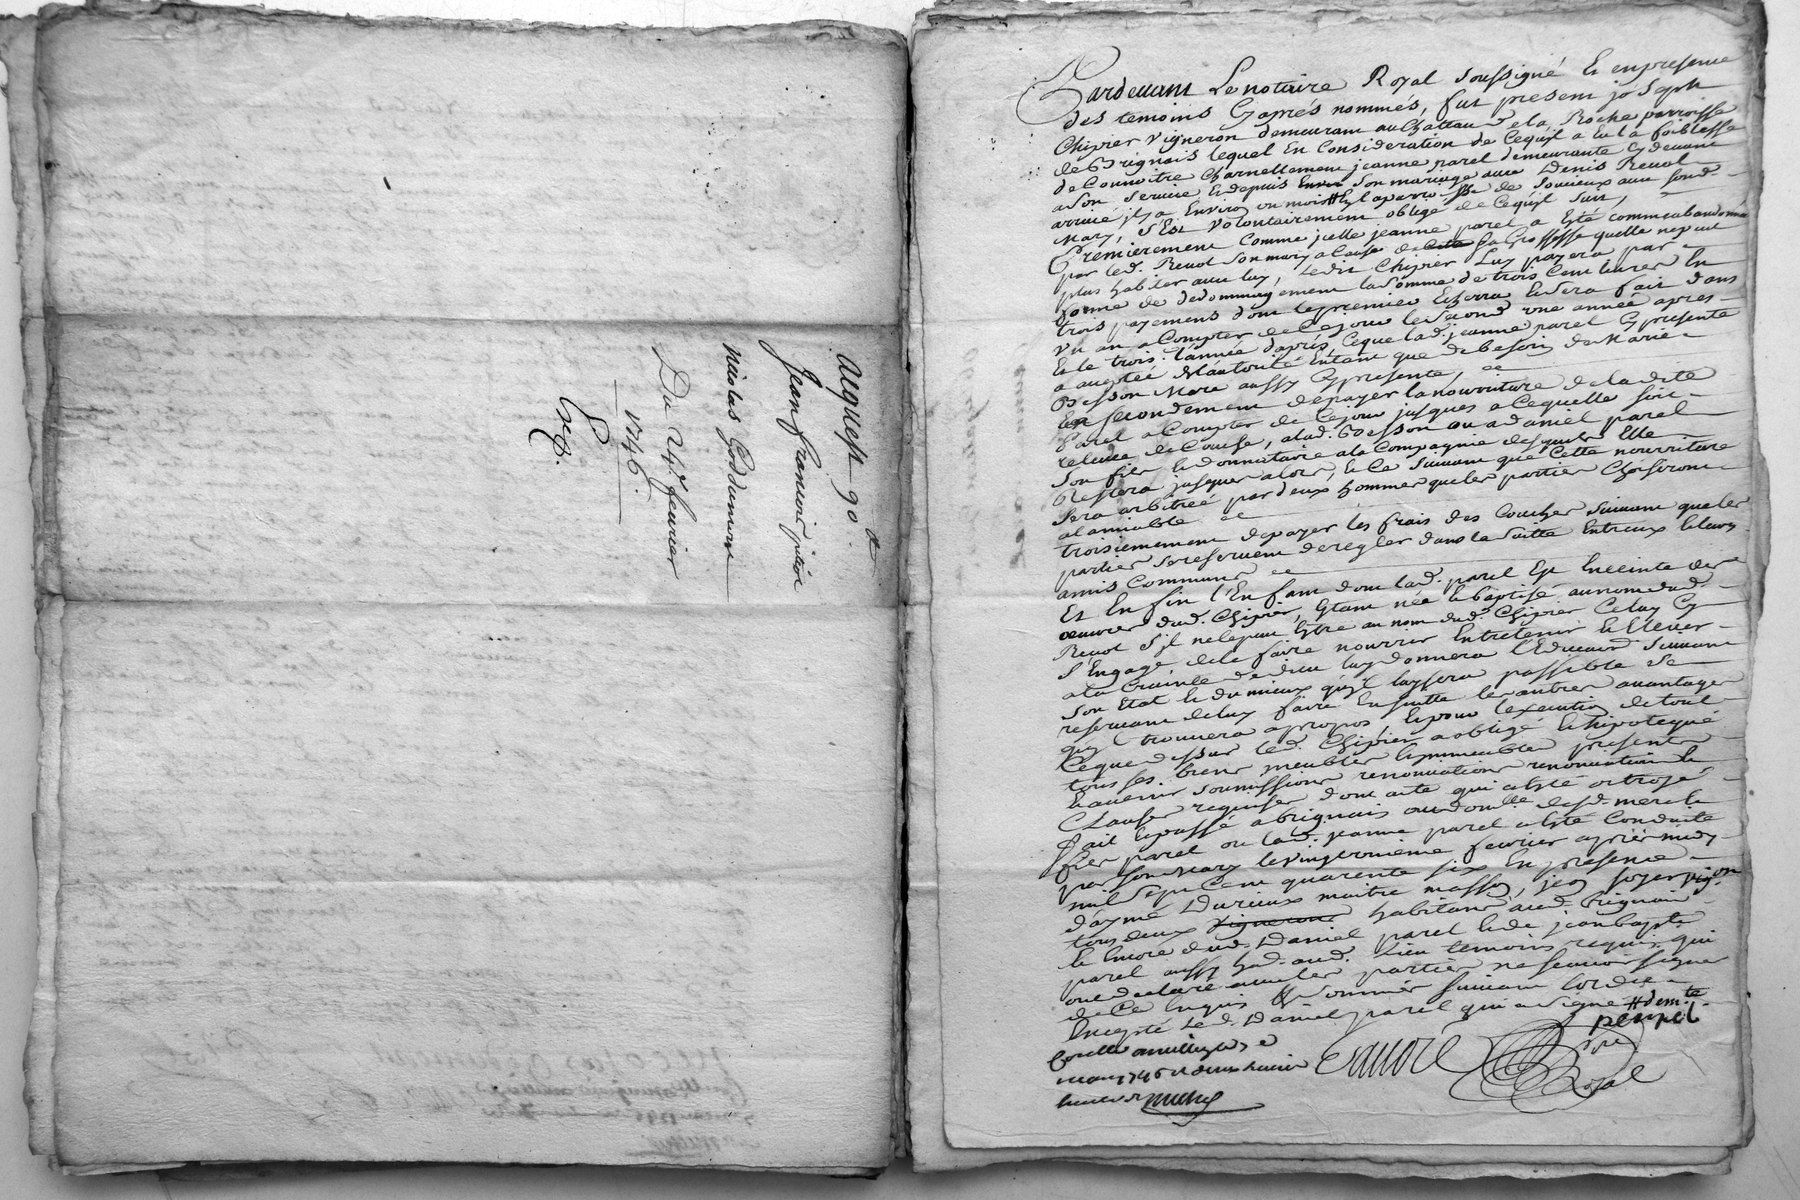 acquest 90#
Jean francois pitiot
nicolas Goddumont
Du 24e feurier
1746.
Exp.
Pardeuant Le notaire Royal soussigné Et en presence
des temoins Cy aprés nommés, fut present joseph
Chipier Vigneron demeurant au Chateau de la Roche parroisse
de Brignais lequel En Consideration de Cequil a eu la foiblesse
de Connoitre Charnellement jeanne parel demeurante Cy deuant
a son seruice Et depuis son mariage auec Denis Reuol
arriué il y a Enuiron un mois # En la parroisse de Soucieux auec sond.
Mary, s'Est Volontairement obligé de Cequil suit,
Premierement Comme jcelle jeanne parel a Esté Comme abandonnée
par led. Reuol son mary a Cause de sa Grossesse quelle ne peut
plus habiter auec luy, ledit Chipier Luy payera par
forme de dedommagement la somme de trois Cent liures En
trois payements dont le premier Echerra Et sera fait dans
Vn an a Compter de Ce jour le second une année apres
Et le trois. l'année d'aprés, Ce que lad. jeanne parel Cy presente
a accepté de l'autorité Entant que de besoin de Marie
Besson Mere aussy Cy presente,
En secondement de payer la nourriture de la dite
Parel a Compter de Ce jour jusques a Ce quelle soit
releuée de Couche, a lad. Besson ou a daniel parel
son fils Et donnataire a la Compagnie desquels Elle
Restera jusques alors, Et Ce suiuant que Cette nourriture
sera arbitreé par deux hommes que les parties Choisiront
al amiable
troisiemement de payer les frais des Couches suiuant que les
parties se reseruent de regler dans la suitte Entreux Et leurs
amis Communs
Et En fin l'Enfant dont lad. parel Est Enceinte des
oeuures dud. Chipier, Etant née Et baptisé au nom dud.
Reuol s'il ne le peut Estre au nom dud. Chipier Celuy Cy
s'Engage de le faire nourrir Entretenir Et Eleuer
a la Crainte de dieu luy donnera l'Education suiuant
son Etat Et du mieux qu'il luy sera possible se
reseruant de luy faire Ensuitte les autres auantages
qu'il trouuera a propos, Et pour l'execution de tout
Ceque dessus led. Chipier a obligé Et hipotequé
tous ses biens meubles Et jmmeubles presents
Et auenir soumissions renonciations renonciation Et
Clauses requises dont acte qui a Esté octroyé
Fait Et passé a brignais au dom.lle desd. mere Et
fils parel ou lad. jeanne parel a Esté Conduitte
par son Mary le Vingt troisième feurier aprés midy
mil Sept Cent quarente six En presence
d'aymé Durieux maitre masson, jean joyer vigron
tous deux habitans aud. brignais
Et Encore dud. Daniel parel Et de jean bapt.
parel aussy had. aud. Lieu temoins requis qui
ont declaré auec les parties ne sçauoir signer
de Ce Enquis Et sommés suiuant lordce
Excepté led. Daniel parel qui a signé # dem.te